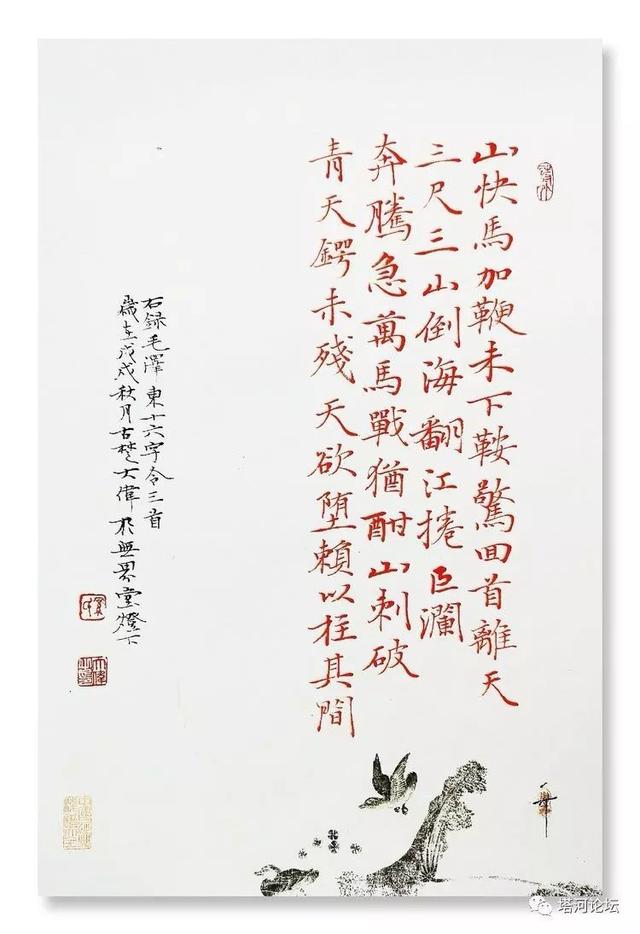 山快馬加鞭未下鞍驚回首離天
三尺三山倒海翻江捲巨瀾
奔騰急萬馬戰猶酣山刺破
青天鍔未殘天欲墮賴以柱其間
右録毛澤東十六字令三首
歲在戊戌秋月古楚大偉於無界堂燈下
塔河论坛